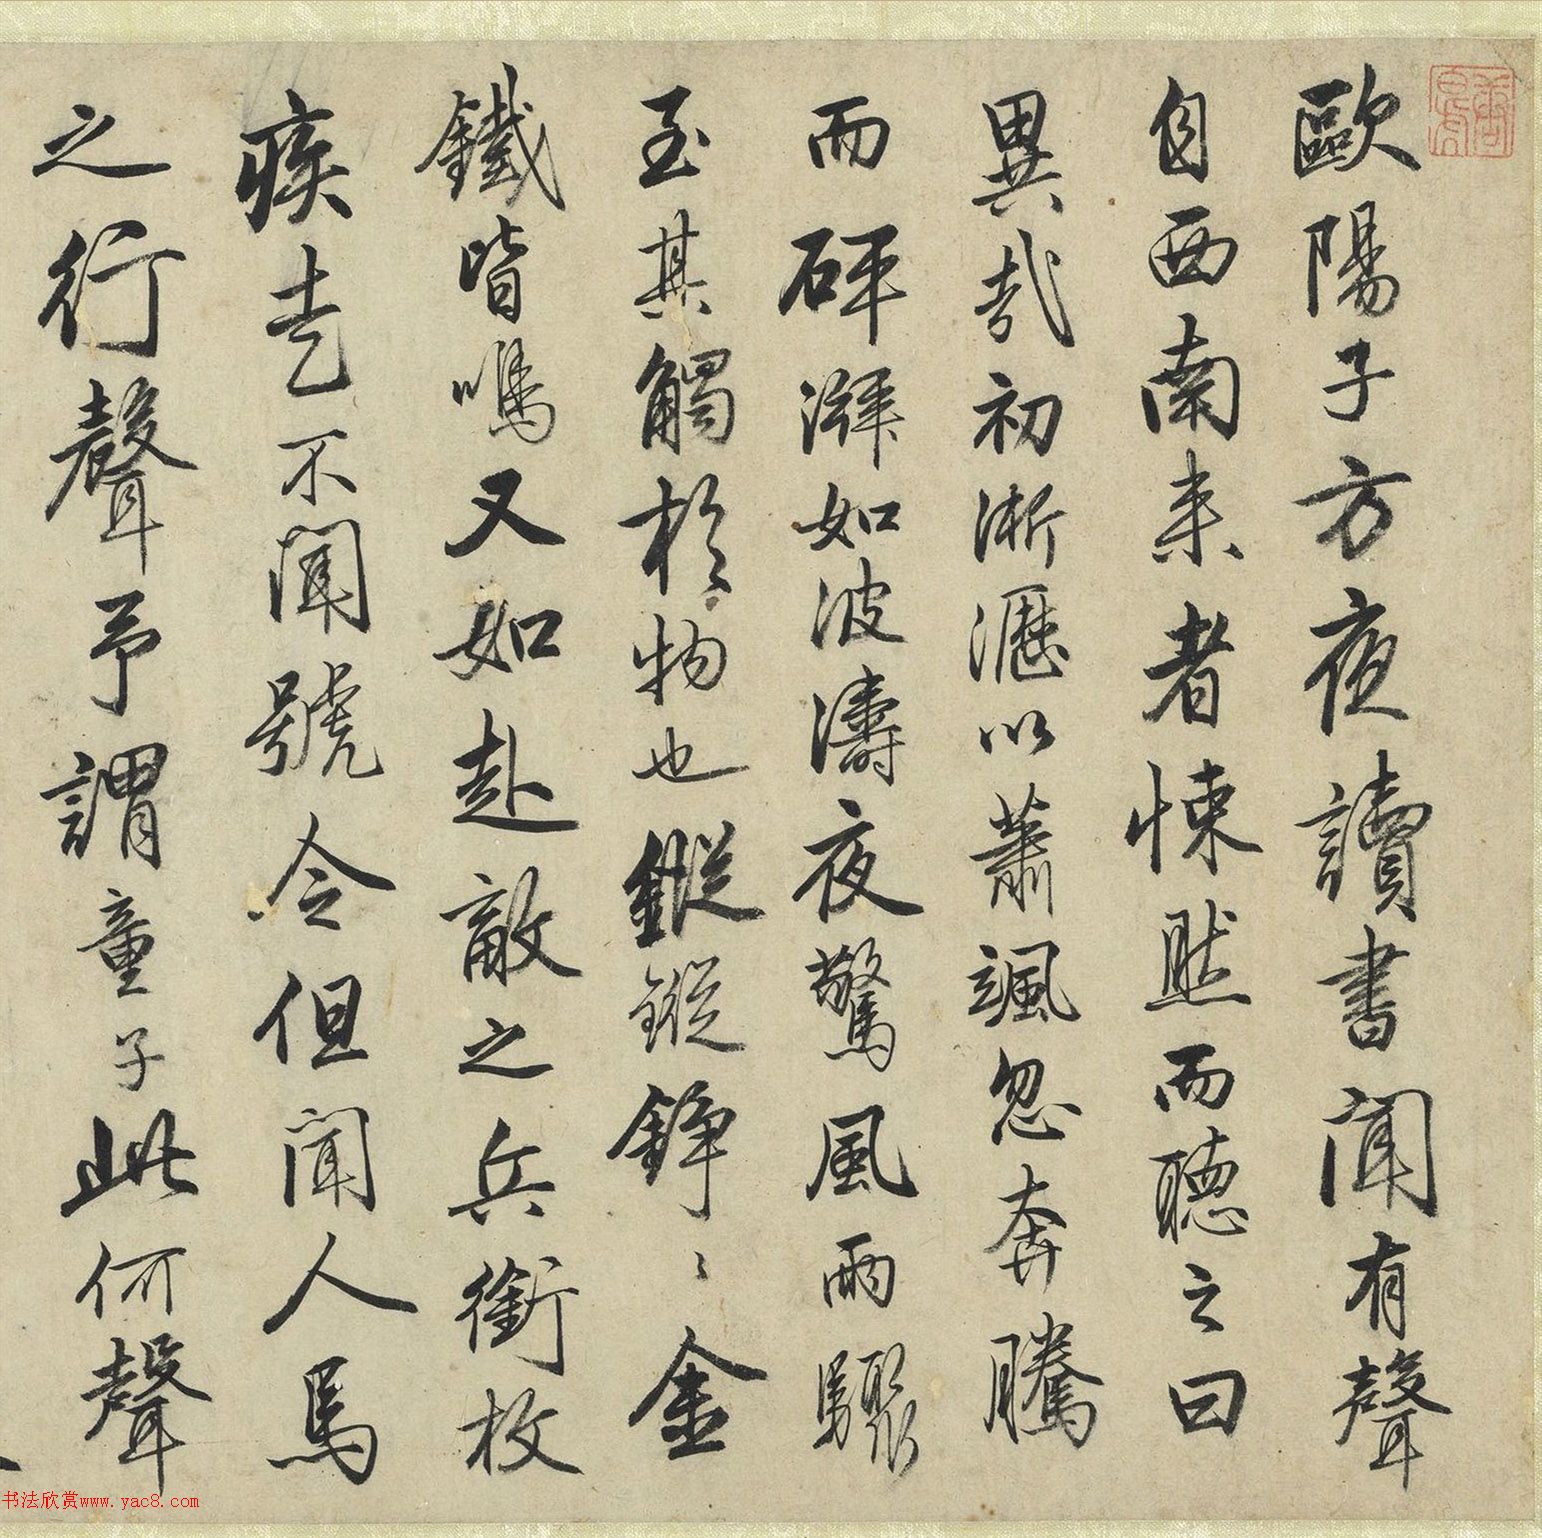 歐陽子方夜讀書聞有聲
自西南来者悚然而聽之曰
異哉初淅瀝以蕭颯忽奔騰
而砰湃如波濤夜驚風雨驟
至其觸於物也鏦鏦錚〻金
鐵皆鳴又如赴敵之兵銜枚
疾走不聞號令但聞人馬
之行聲予謂童子此何聲
书法欣赏www.yac8.com